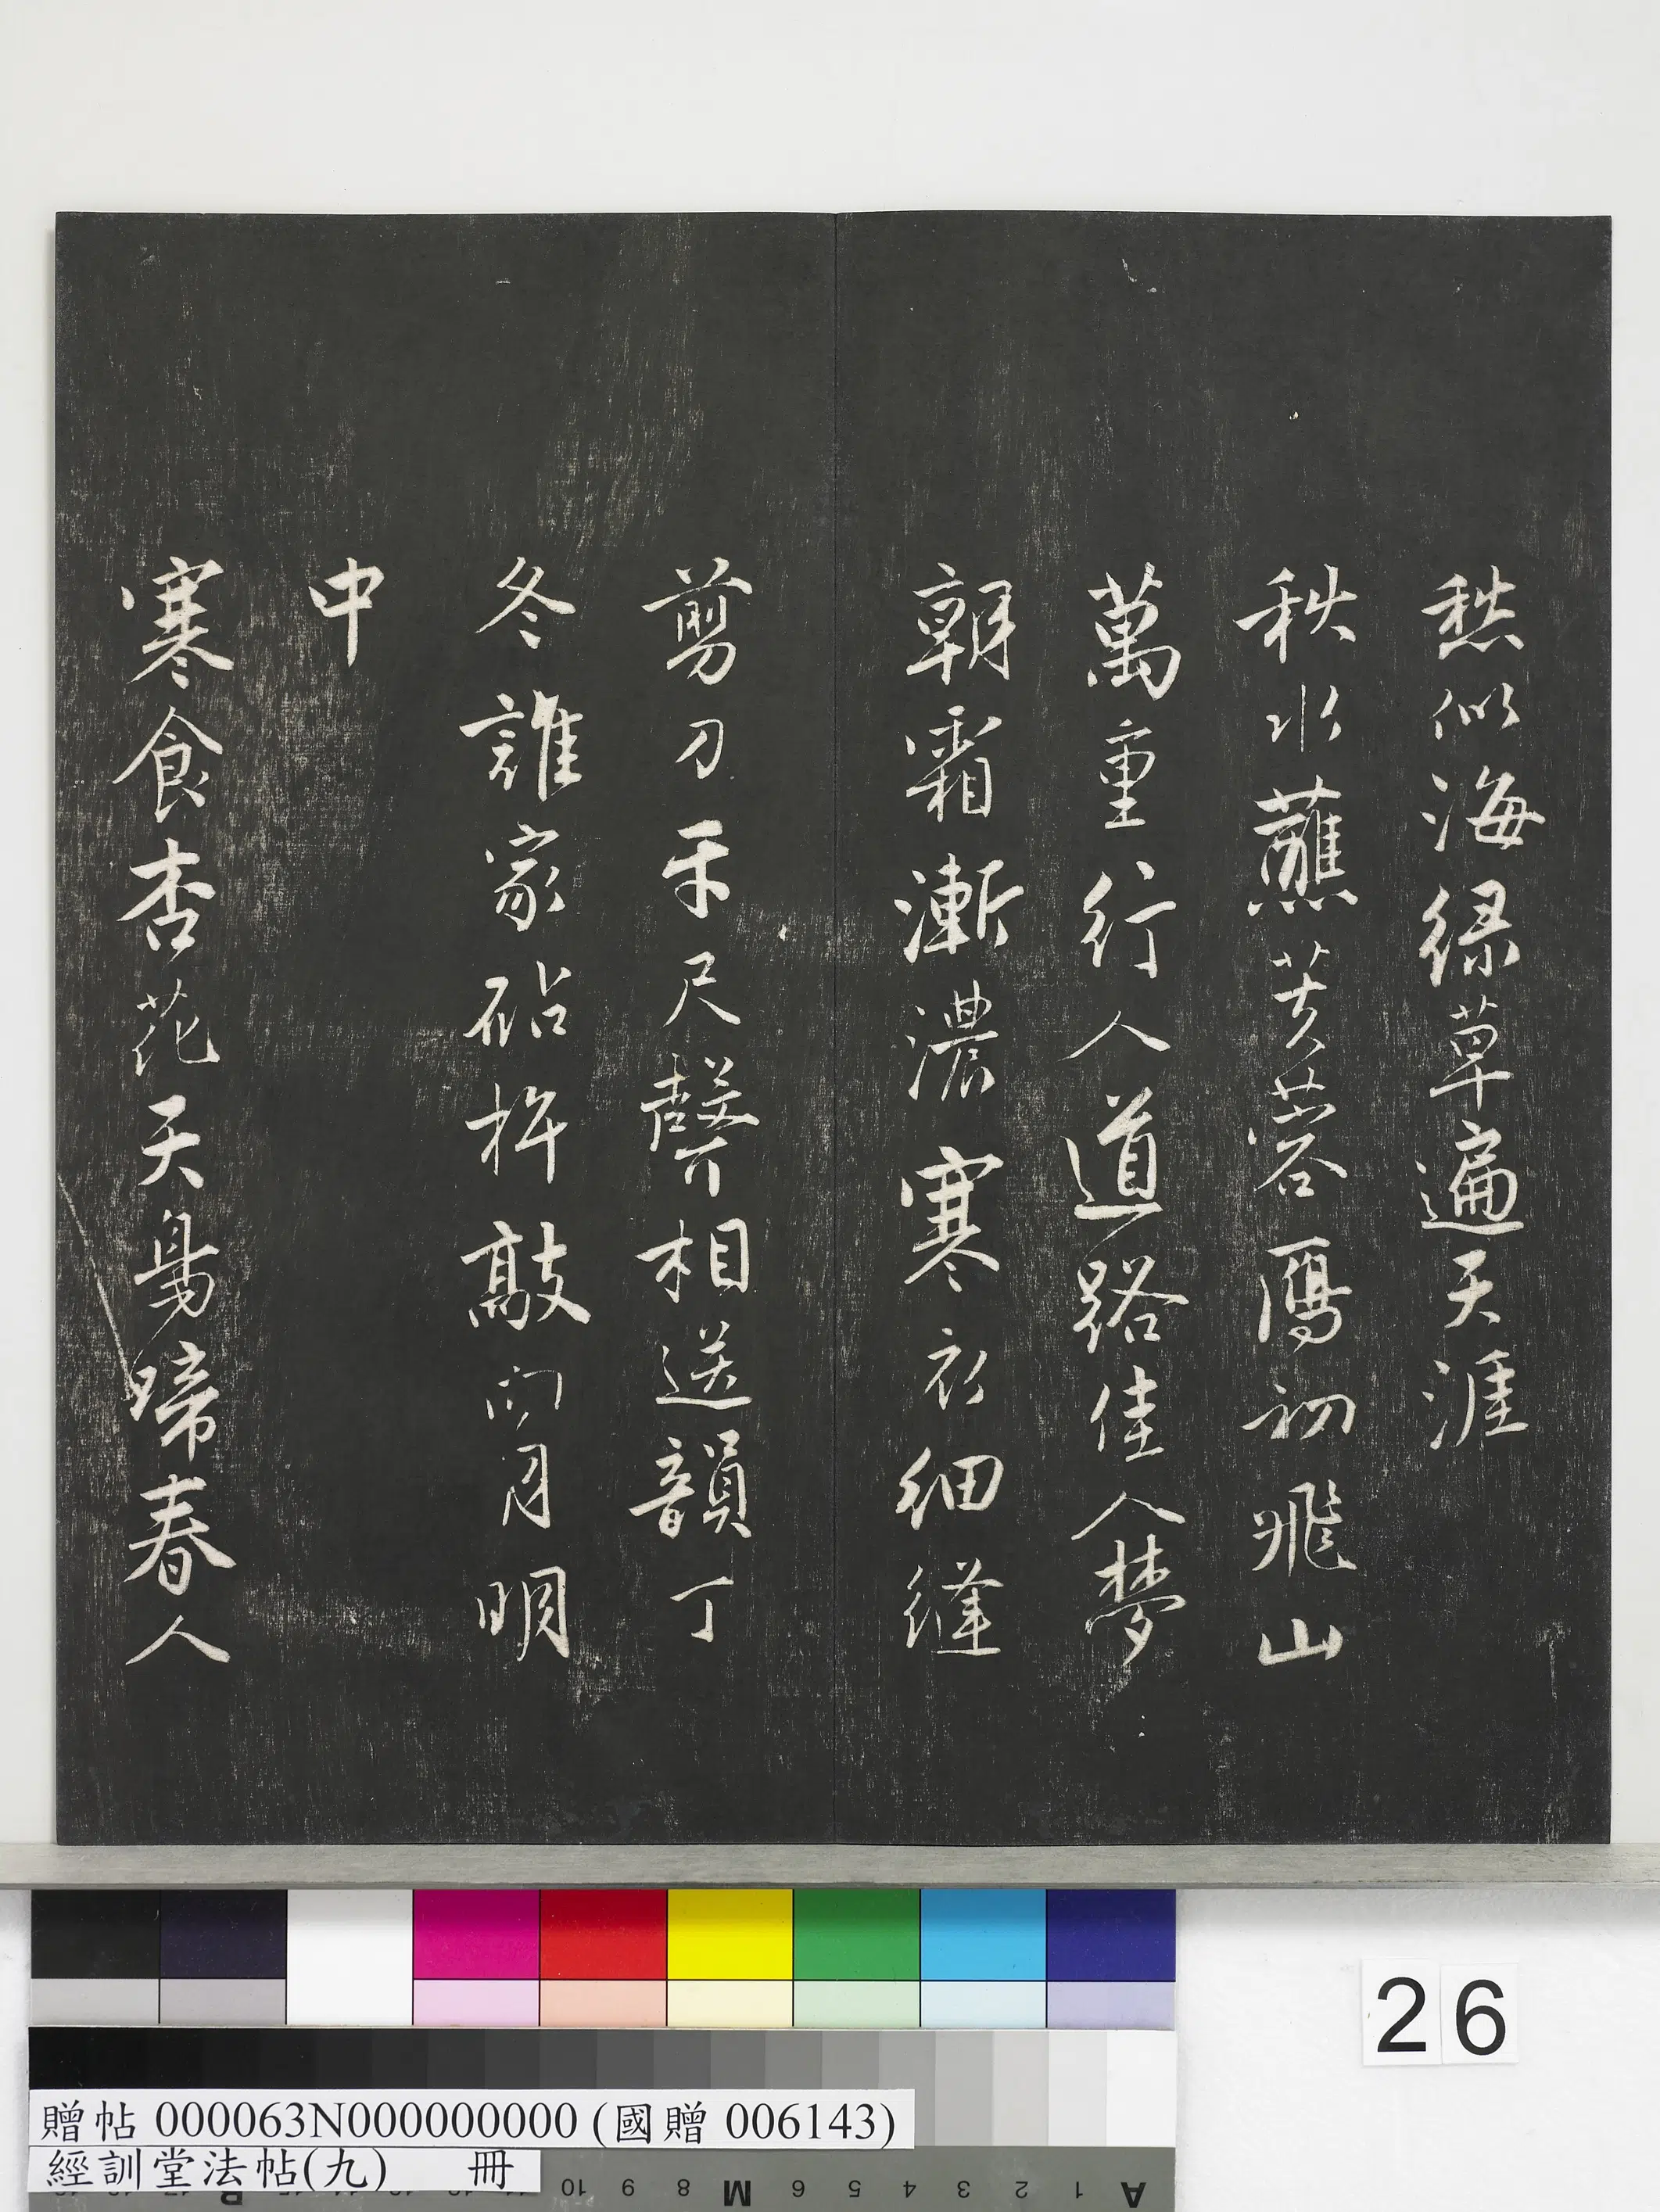 愁似海緑草遍天涯
秋水蘸芙蓉鴈初飛山
萬重行人道路佳人夢
朝霜漸濃寒衣細縫
剪刀牙尺聲相送韻丁
冬誰家砧杵敲向月明
中
寒食杏花天鳥啼春人
26
贈帖 000063N000000000 (國贈 006143)
經訓堂法帖(九) 冊
10 9 8 M 7 6 5 4 3 2 1 A